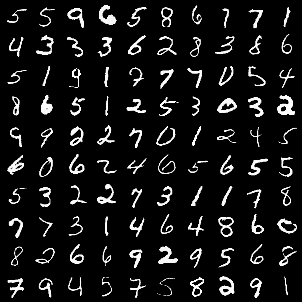 5 5 9 6 5 8 6 7 7 1
4 3 3 3 6 2 8 3 8 6
5 1 9 1 7 7 7 0 5 4
8 6 5 1 2 5 3 0 3 2
9 9 2 2 7 0 1 2 4 5
6 0 6 2 4 6 5 6 5 5
5 3 2 2 7 3 1 1 7 8
7 7 3 1 4 6 4 8 6 0
8 2 6 6 9 2 9 5 6 8
7 9 4 5 7 5 8 2 9 1